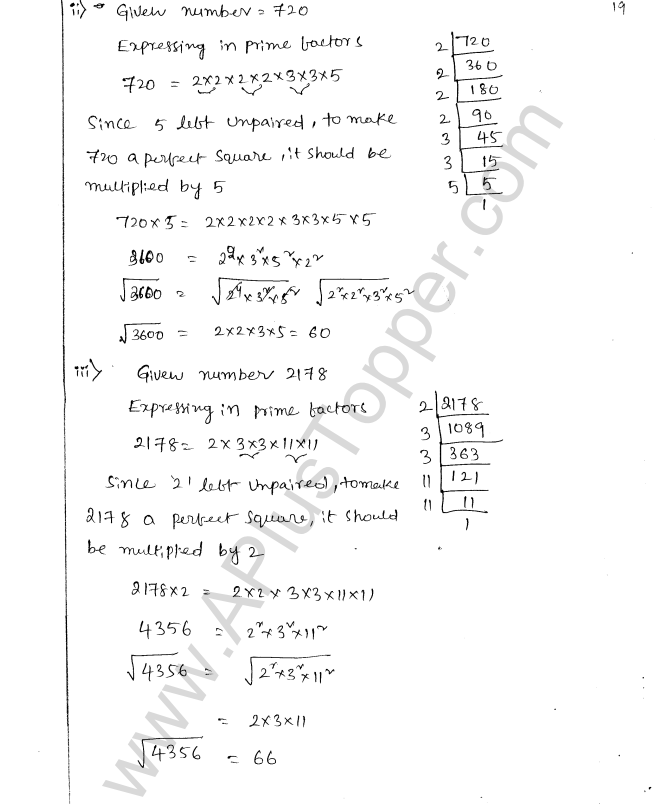 19
ii) Given number = 720
Expressing in prime factors
720 = 2×2×2×2×3×3×5
Since 5 left unpaired, to make
720 a perfect square, it should be
multiplied by 5
720×5 = 2×2×2×2×3×3×5×5
3600 = 2²×3²×5²×2²
√3600 = √2²×2²×3²×5²
√3600 = 2×2×3×5 = 60
2 | 720
2 | 360
2 | 180
2 | 90
3 | 45
3 | 15
5 | 5
1
iii) Given number 2178
Expressing in prime factors
2178 = 2×3×3×11×11
Since '2' left unpaired, to make
2178 a perfect square, it should
be multiplied by 2
2178×2 = 2×2×3×3×11×11
4356 = 2²×3²×11²
√4356 = √2²×3²×11²
= 2×3×11
√4356 = 66
2 | 2178
3 | 1089
3 | 363
11 | 121
11 | 11
1
www.APlusTopper.com